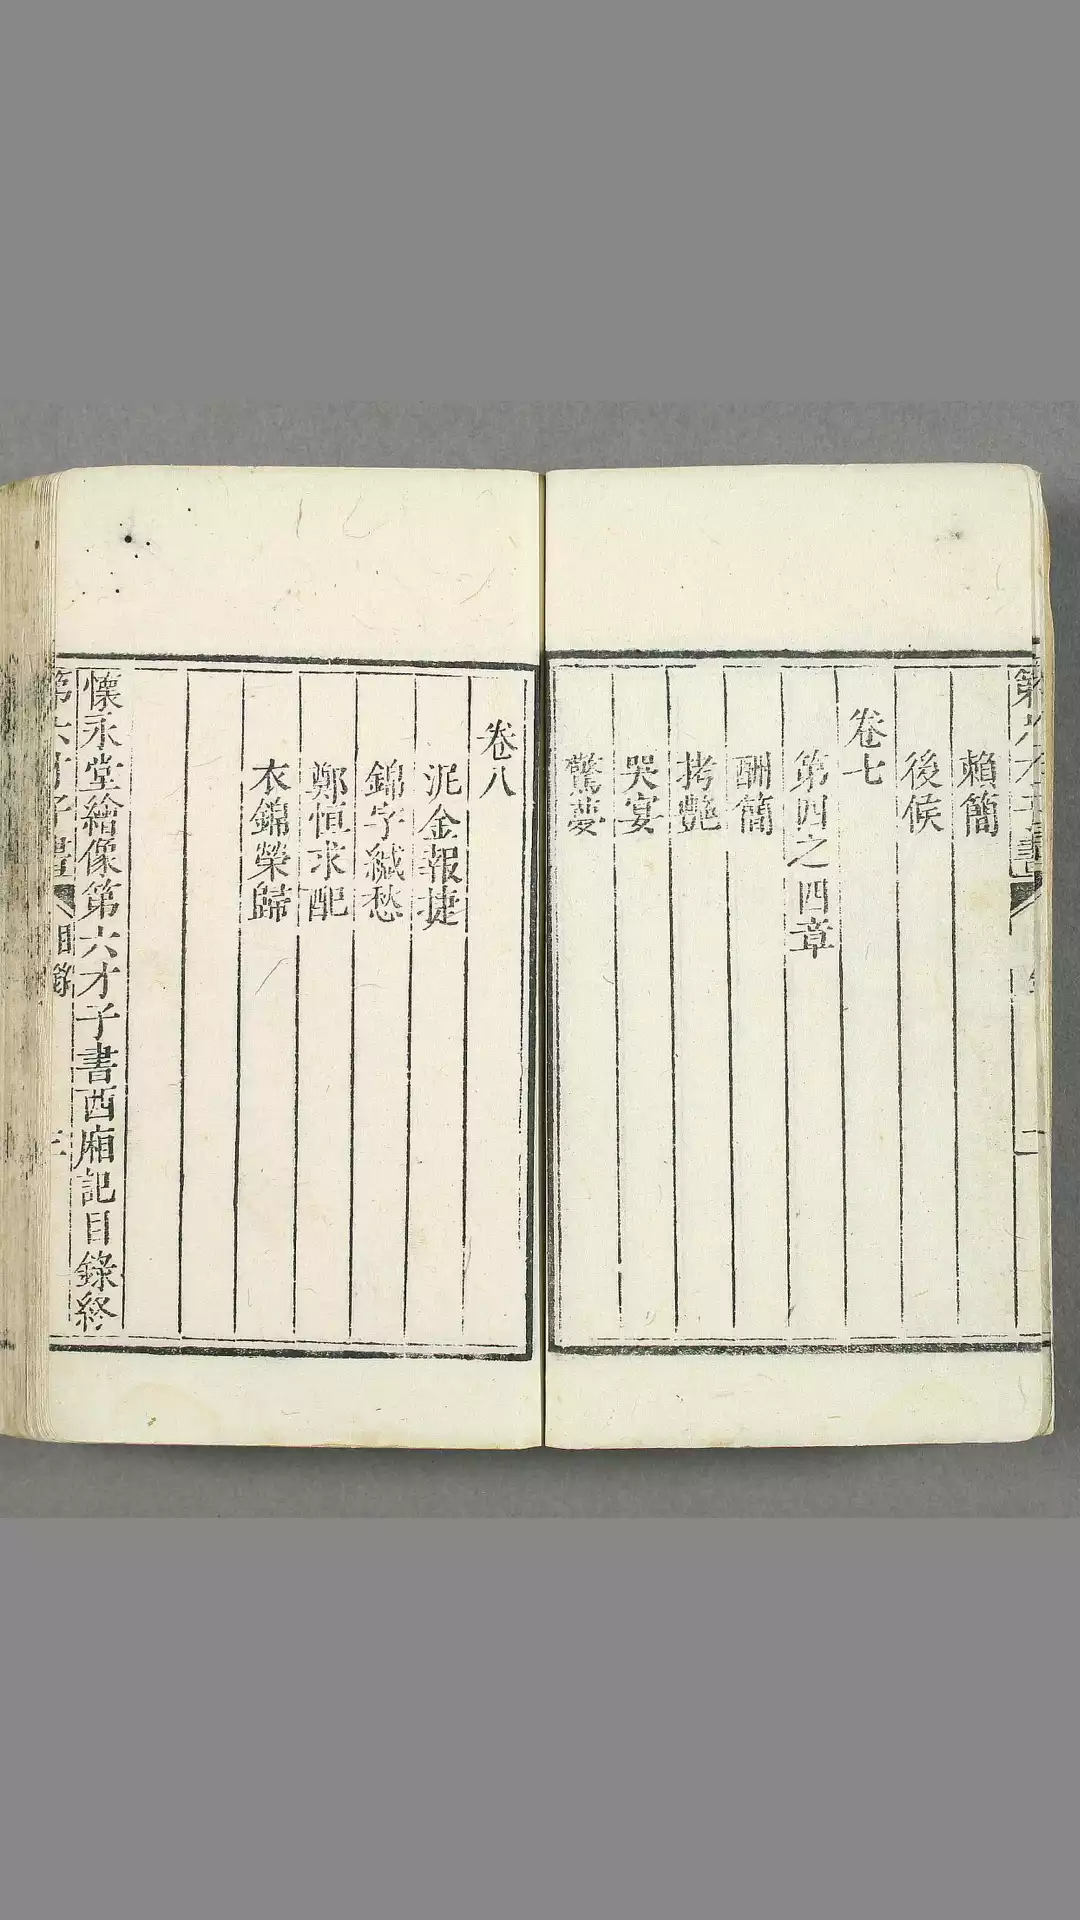 賴簡
後候
卷七
第四之四章
酬簡
拷艷
哭宴
驚夢
卷八
泥金報捷
錦字緘愁
鄭恒求配
衣錦榮歸
懷永堂繪像第六才子書西廂記目錄終
第六才子書
目錄
三